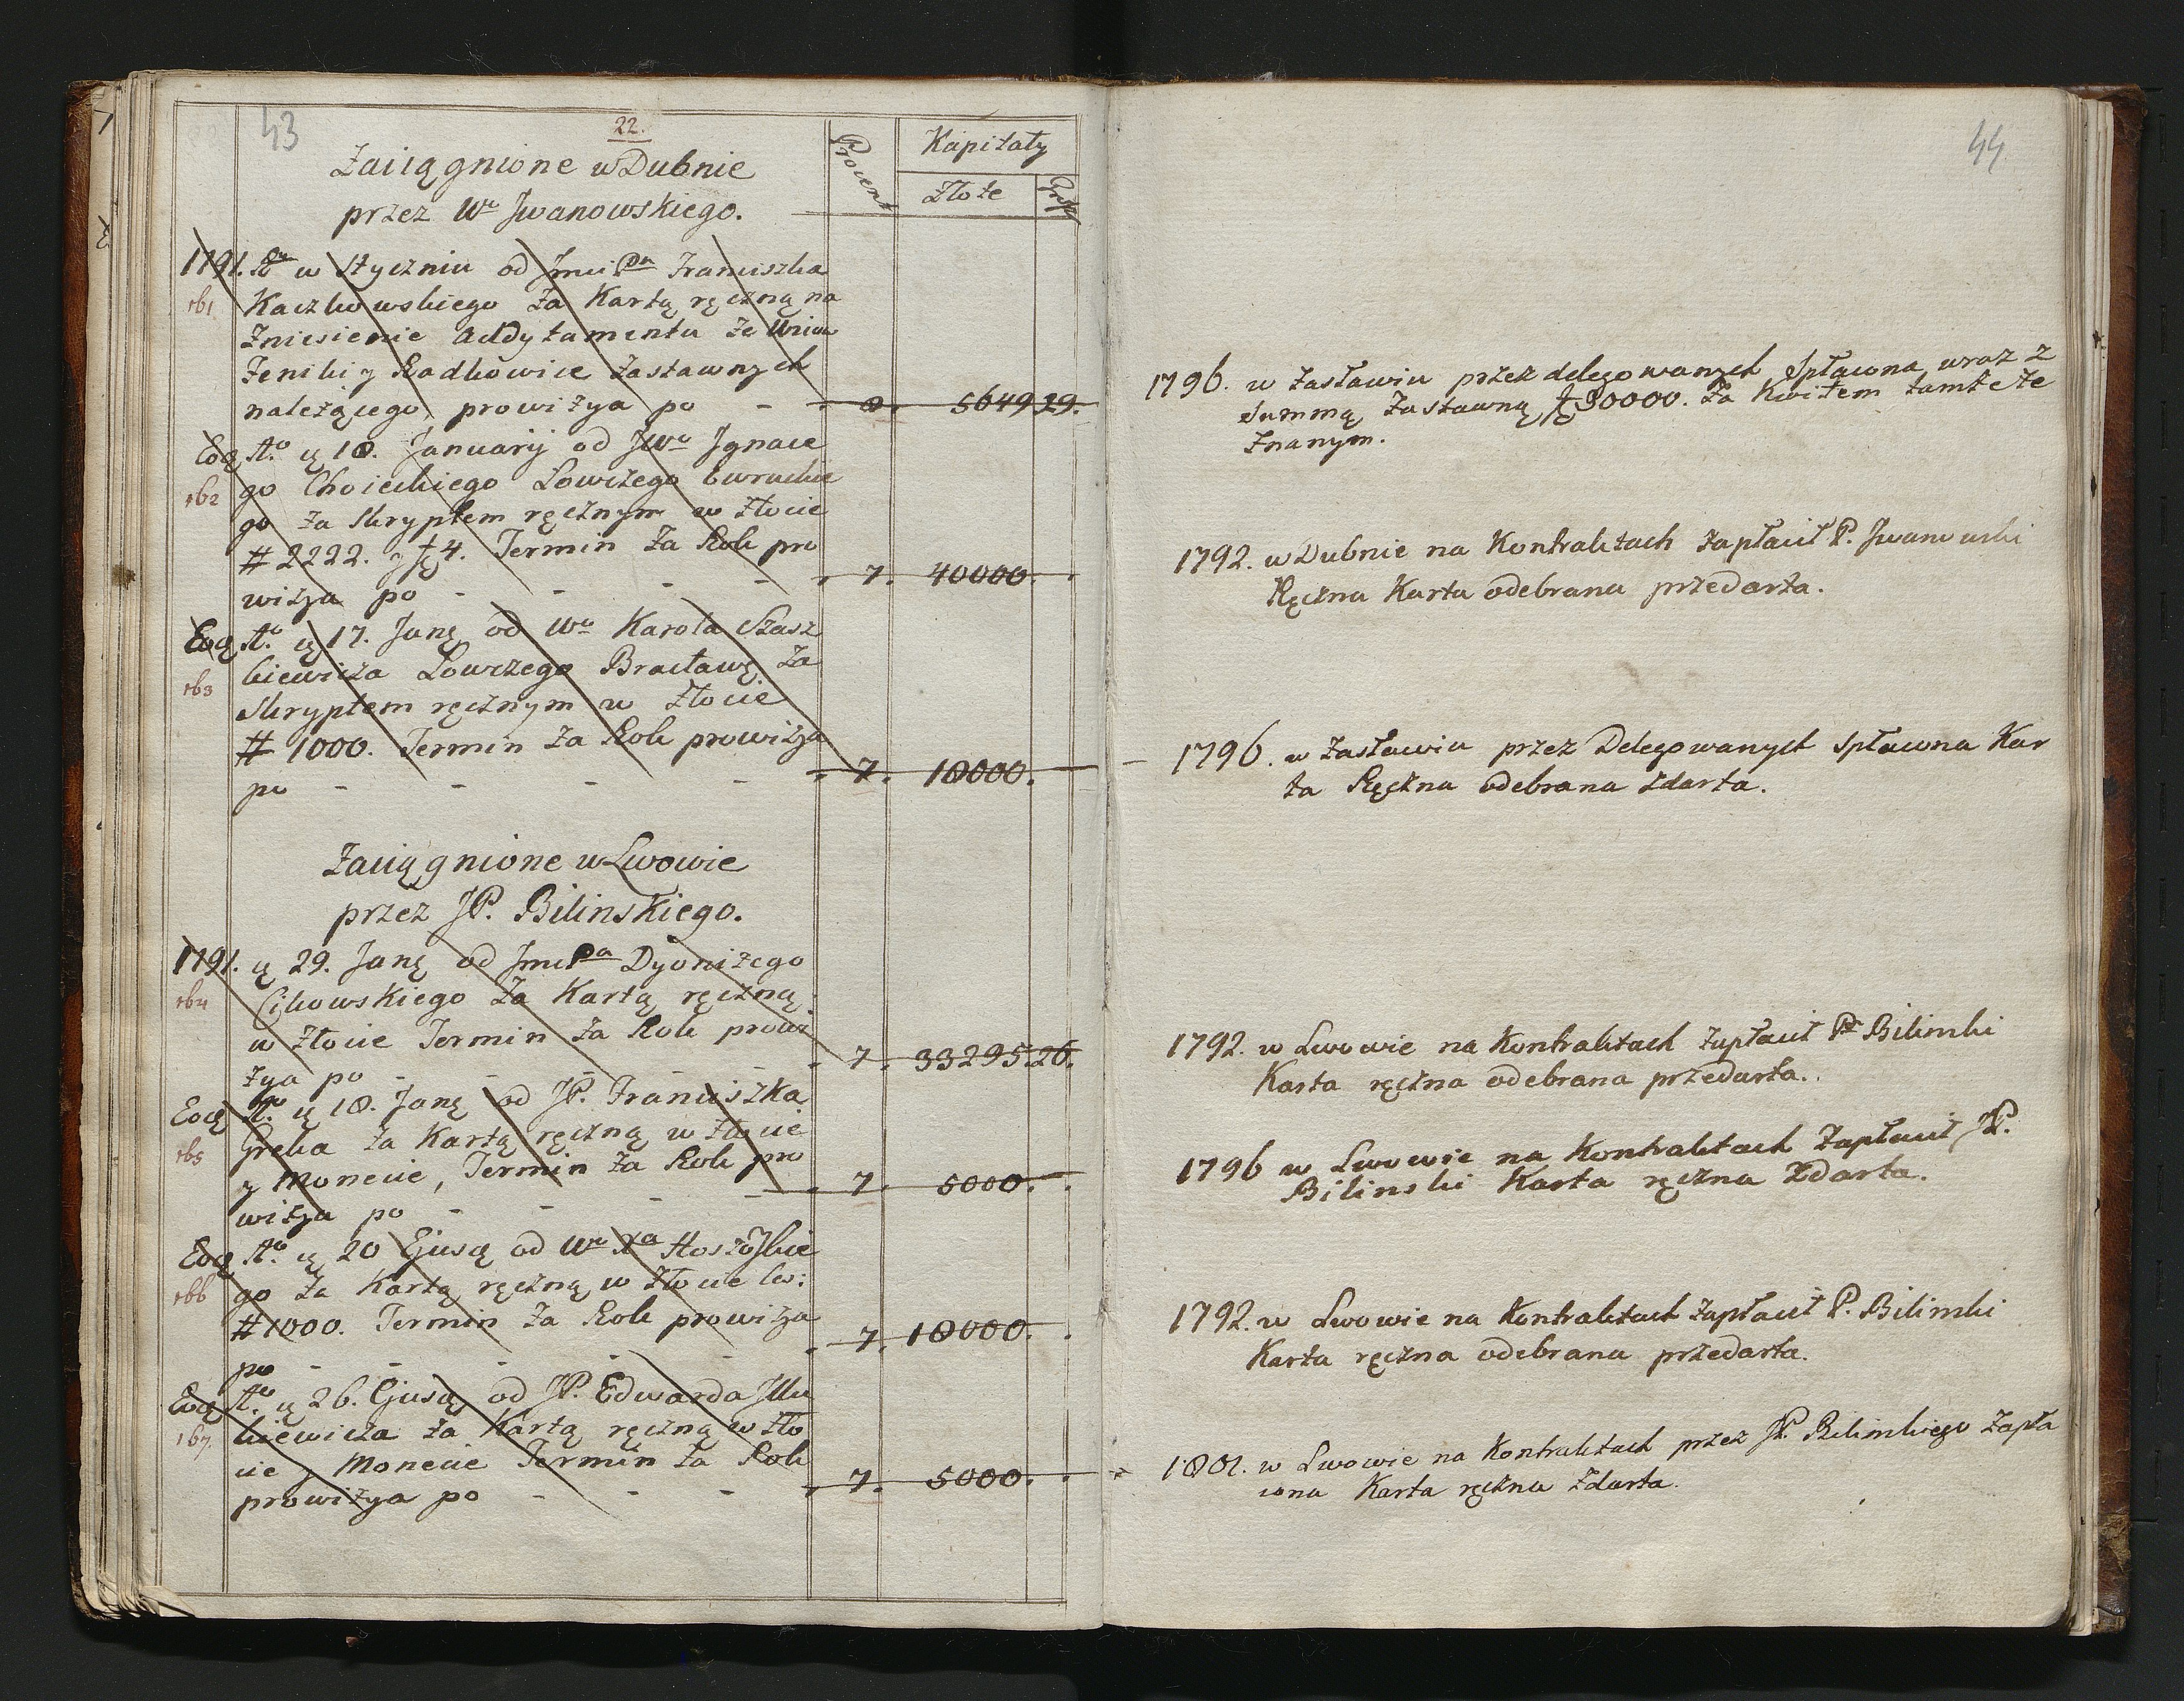 43
22.
Zaciągnione w Dubnie
przez Wo Jwanowskiego.
Procent
Kapitały
Złote
1791. Ru w Styczniu od Jmci Pn Franciszka
161 Kaczkowskiego za Kartą ręczną na
Zniesienie Addytamentu ze Wsiow
Radkowice Zastawnych
należącego, prowizya po - - 8. 5649 29.
Eoq Ao. ą 18. Januarij od JWo Jgnace
162 go Choieckiego Łowczego Owruckie
go za Skryptem ręcznym w złocie
# 2222. y 4. Termin za Rok pro
wizya po - - - - 7. 40000.
Eoq Ao. ą 17. Janę od Wo Karola Szasz
163 kiewicza Łowczego Bracławę za
Skryptem ręcznym w złocie
# 1000. Termin za Rok prowizya
po - - - - 7. 18000.
Zaciągnione w Lwowie
przez JP. Bilinskiego.
1791. ą 29. Janę od Jmci Pa Dyonizego
164 Cikowskiego za Kartą ręczną
w złocie Termin za Rok prowi
zya po - - - - 7. 33295. 26.
Eoq Ao. ą 18. Janę od JP. Franciszka
165 Greka za Kartą ręczną w złocie
y Monecie, Termin za Rok pro
wizya po - - - - 7. 5000.
Eoq Ao. ą 20 Ejusą od Wo Xa Hoszowskie
166 go za Kartą ręczną w złocie
# 1000. Termin za Rok prowizya
po - - - - 7. 18000.
Eoq Ao. ą 26. Ejusą od JP. Edwarda
167. kiewicza za Kartą ręczną w zło
cie y Monecie Termin za Rok
prowizya po - - - 7. 5000.
44
1796. w Zasławiu przez delegowanych Spłacona wraz z
Summą Zastawną 30000. za Kwitem tamże ze
znanym.
1792. w Dubnie na Kontraktach zapłacił P. Jwanowski
Ręczna Karta odebrana przedarta.
1796. w Zasławiu przez Delegowanych spłacona Kar
ta Ręczna odebrana zdarta.
1792. w Lwowie na Kontraktach zapłacił Pn Bilinski
Karta ręczna odebrana przedarta.
1796 w Lwowie na Kontraktach Zapłacił JP.
Bilinski Karta ręczna zdarta.
1792. w Lwowie na Kontraktach zapłacił P. Bilinski
Karta ręczna odebrana przedarta.
1801. w Lwowie na Kontraktach przez JP. Bilinskiego zapła
cona Karta ręczna zdarta.